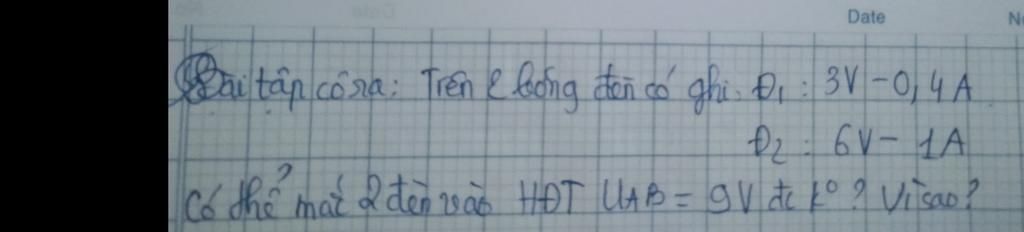 Date
Bài tập cô ra: Trên 2 bóng đèn có ghi: Đ1: 3V - 0,4A
Đ2: 6V - 1A
Có thể mắc 2 đèn vào HĐT UAB = 9V đc ko? Vì sao?